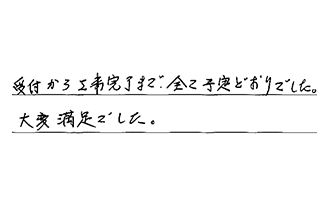 受付から工事完了まで、全て予定どおりでした。
大変満足でした。